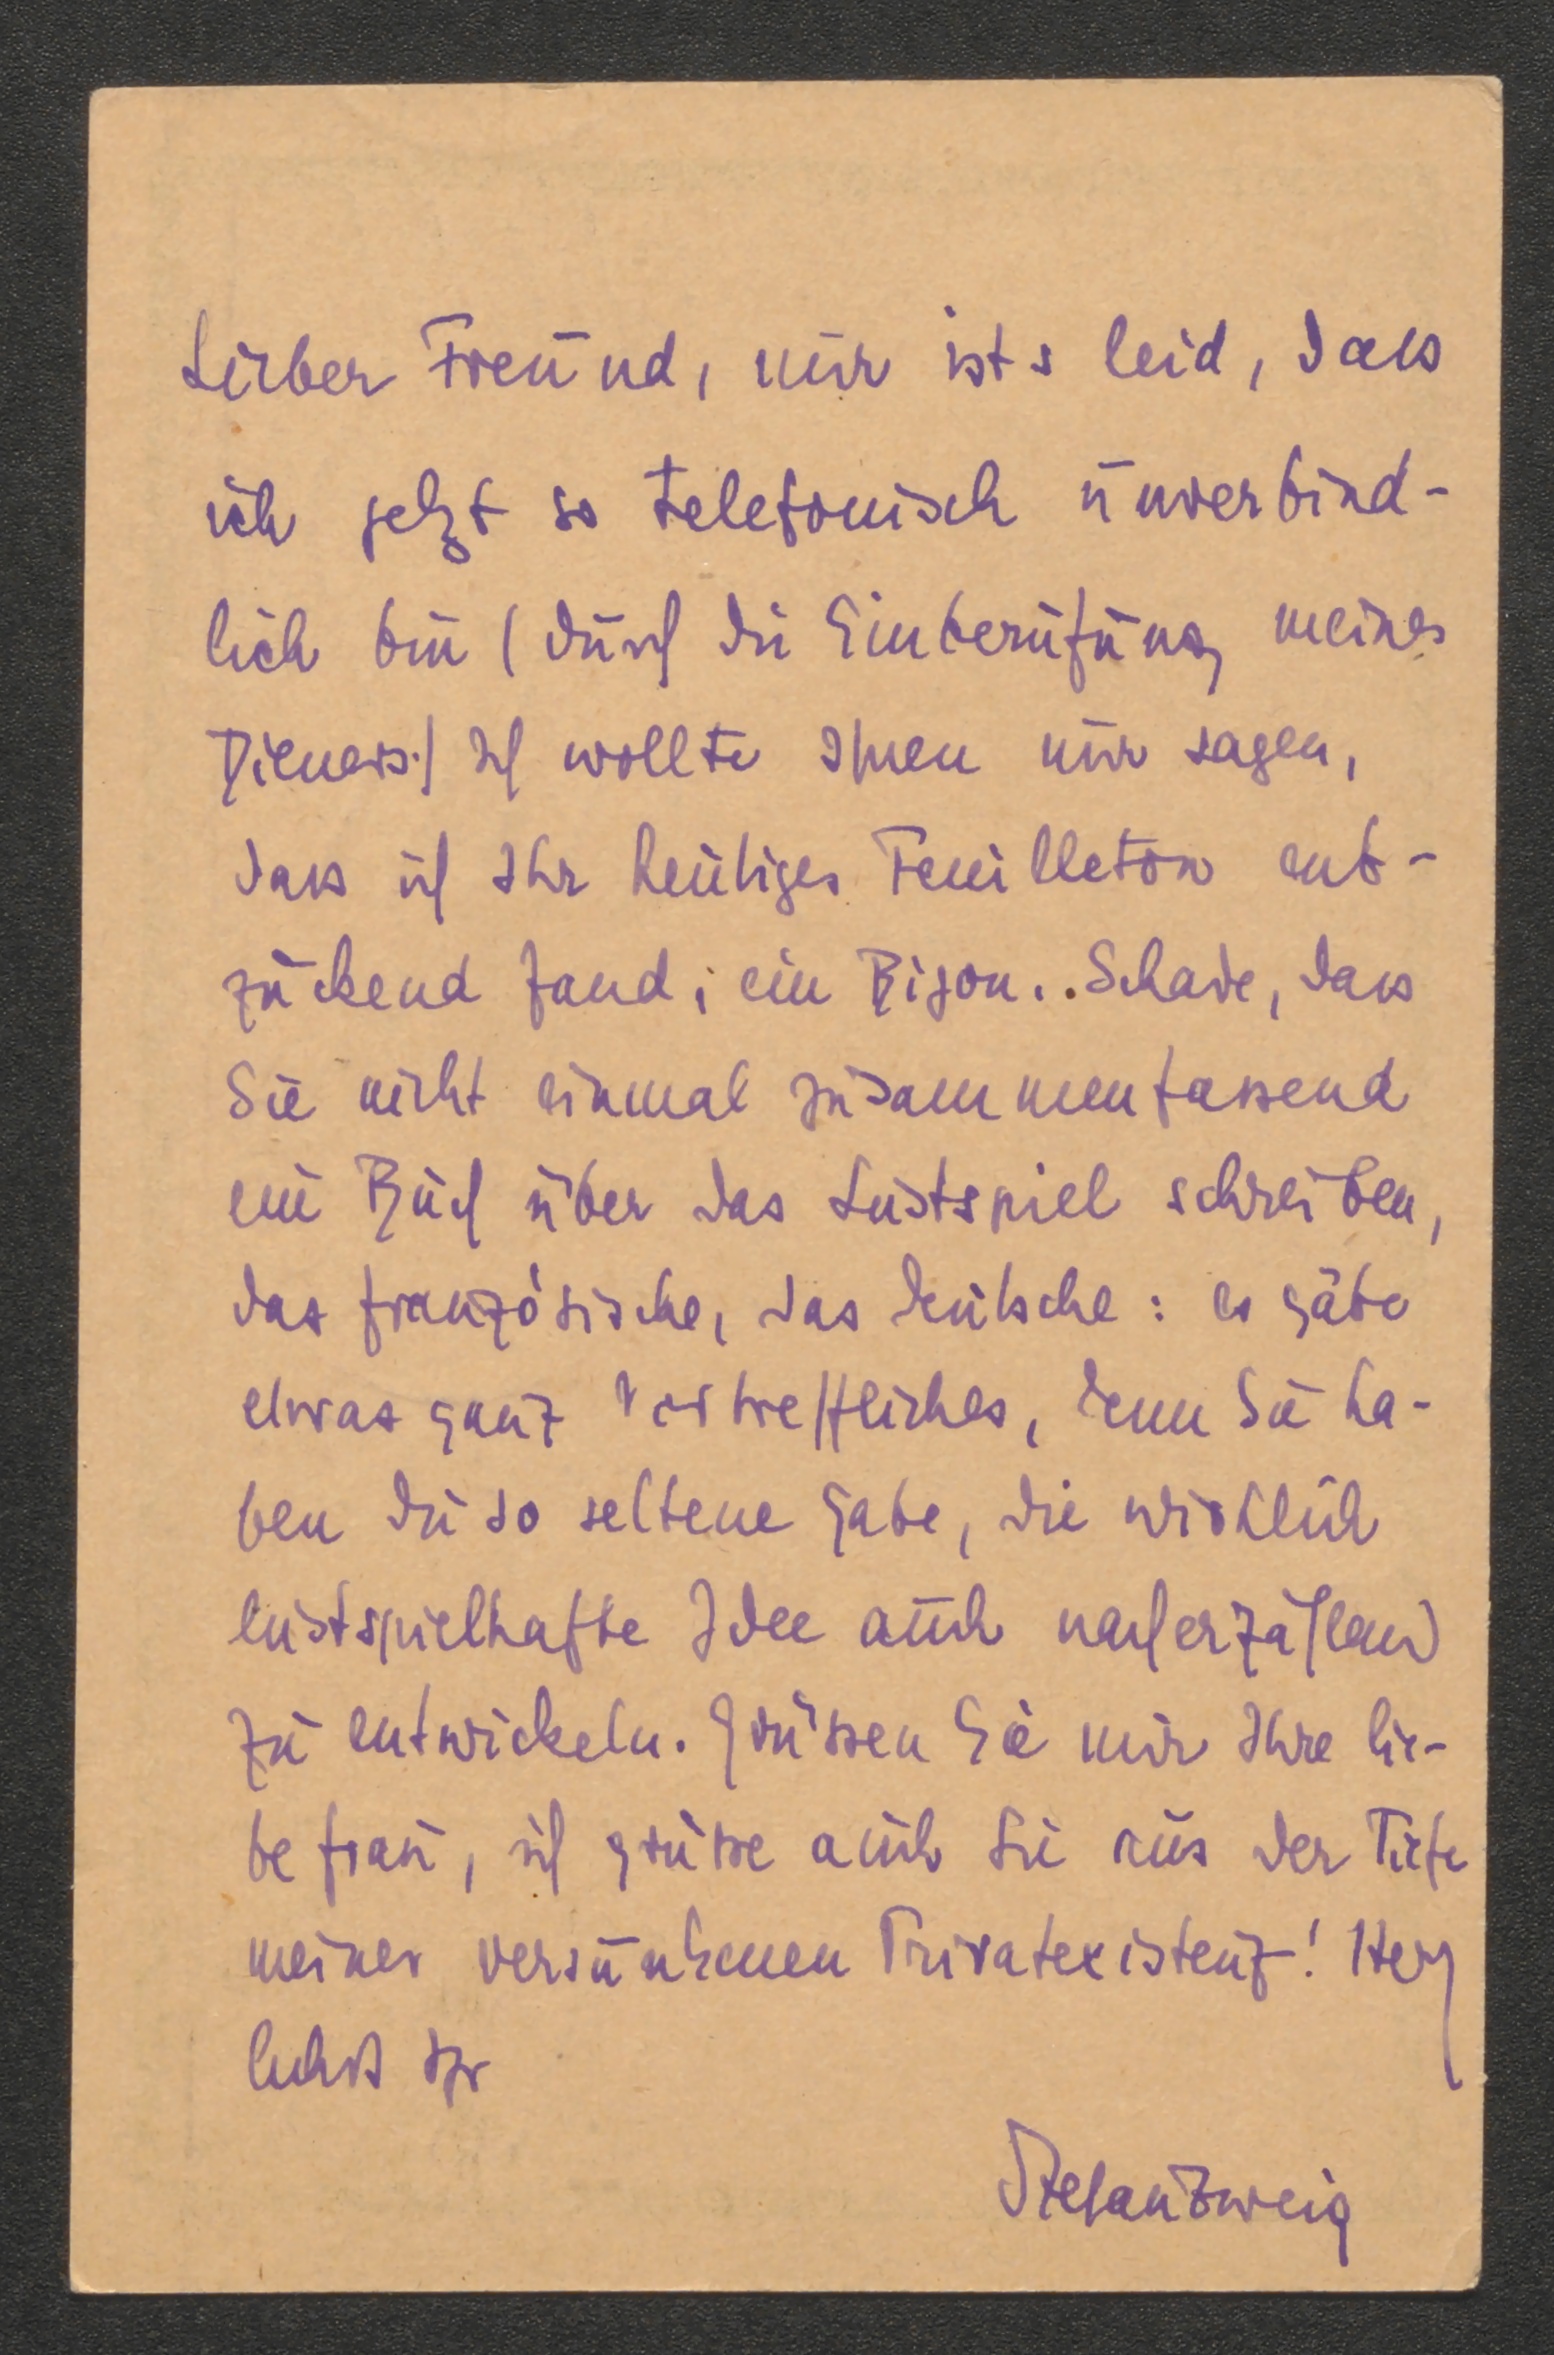 Lieber Freund, mir ists leid, dass
ich jetzt so telefonisch unverbind-
lich bin (durch die Einberufung meines
Dieners.) Ich wollte Ihnen nur sagen,
dass ich Ihr heutiges Feuilleton ent-
zückend fand; ein Bijou.. Schade, dass
Sie nicht einmal zusammenfassend
ein Buch über das Lustspiel schreiben,
das französische, das deutsche: es gäbe
etwas ganz Vortreffliches, denn Sie ha-
ben die so seltene Gabe, die wirklich
lustspielhafte Idee auch nacherzählend
zu entwickeln. Grüssen Sie mir Ihre lie-
be Frau, ich grüsse auch Sie aus der Tiefe
meiner versunkenen Privatexistenz! Herz
lichst Ihr
Stefan Zweig